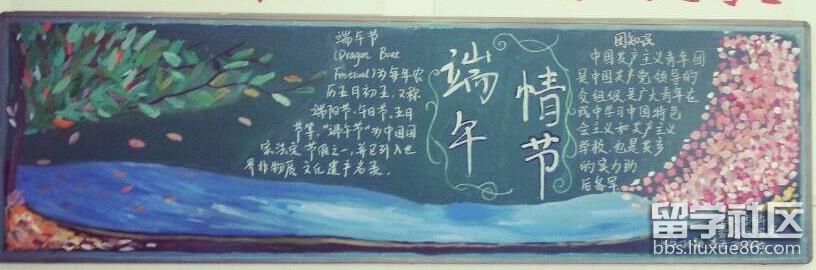 端午节
(Dragon Boat
Festival)为每年农
历五月初五,又称
端阳节、午日节、五月
节等,"端午节"为中国国
家法定节假之一,并已列入世
界非物质文化遗产名录。
端午
情节
团知识
中国共产主义青年团
是中国共产党领导的
是广大青年在
中学习中国特色
会主义和共产主义
学校,也是
的
后备军
留学社区
bbs.liuxue86.com